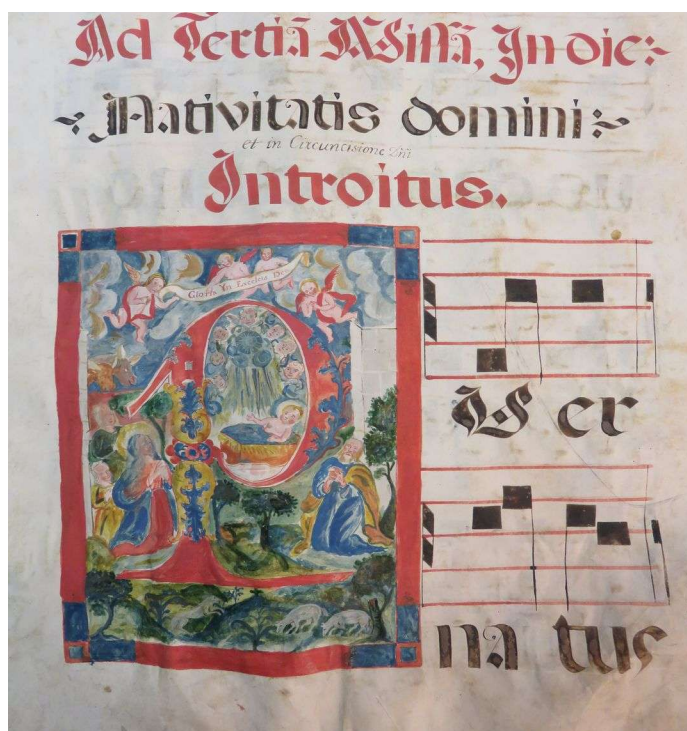 Ad Tertiã Missã, In die:
Nativitatis domini:
et in Circuncisione Dñi
Introitus.
Gloria In Excelsis Deo
P
Uer
na tus